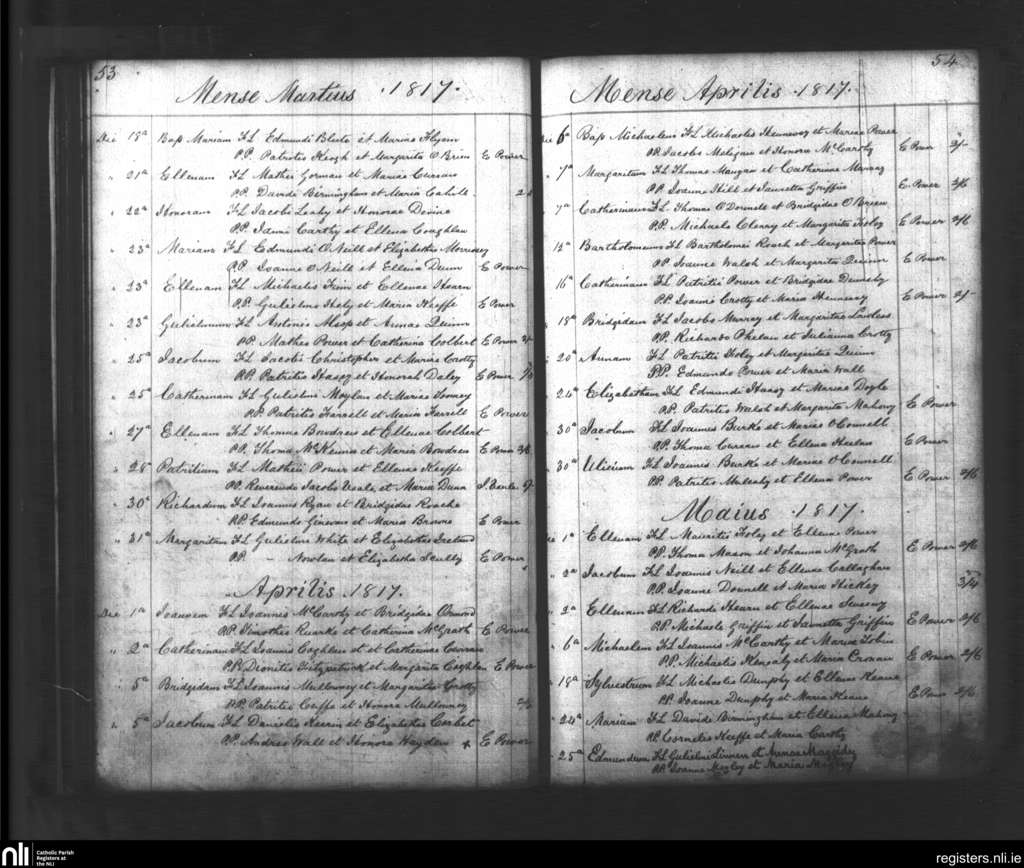 53
Mense Martius 1817.
Die 18ª Bap Mariam FL Edmundi Bluto et Mariae Flynn
P.P. Patritis Keogh et Margarita O Brien E Power
21ª Ellenam FL Mathei Gorman et Mariae Curran
P.P. Davide Birmingham et Maria Cahill
22ª Honoram FL Jacobi Leahy et Honorae Devine
P.P. Carthy et Ellena Coughlan
23ª Mariam FL Edmundi O Neill et Elizabethae Morrissey
P.P. Joanne O Neill et Ellena Dunn E Power
23ª Ellenam FL Michaelis et Ellenae Hearn
P.P. Gulielmo Hely et Maria Keeffe E Power
23ª Gulielmum FL Antonii et Annae Quinn
P.P. Matheo Power et Catherina Colbert E Power
25ª Jacobum FL Jacobi Christopher et Mariae Crotty
P.P. Patritis et Honorah Daley E Power
25ª Catherinam FL Gulielmi Moylan et Mariae Toomey
P.P. Patritis Farrell et Maria Farrell E Power
27ª Ellenam FL Thomae Bowdren et Ellenae Colbert
P.P. Thoma McKenna et Maria Bowdren E Power
28 Patritium FL Mathei Power et Ellenae Keeffe
P.P. Reverendo Jacobo Veale et Maria Dunn J. Veale
30ª Richardum FL Joannis Ryan et Bridgidae Roache
P.P. Edmundo et Maria Browne E Power
31ª Margaritam FL Gulielmi White et Elizabethae Ireland
P.P. Nowlan et Elizabetha Scully E Power
Aprilis 1817.
Die 1ª Joannem FL Joannis McCarthy et Bridgidae Ormond
P.P. Timotheo Ruarke et Catherina McGrath E Power
2ª Catherinam FL Joannis Coghlan et Catherinae Curran
P.P. Dionitis Fitzpatrick et Margarita Coghlan E Power
5ª Bridgidam FL Joannis Mullowney et Margaritae Crotty
P.P. Patritis Cuffe et Honora Mullowney
5ª Jacobum FL Danielis Keerin et Elizabethae Corbet
P.P. Andreo Wall et Honora Hayden E Power
54
Mense Aprilis 1817.
Die 6ª Bap Michaelem FL Michaelis Hennessy et Mariae Power
P.P. Jacobo Meligan et Honora McCarthy E Power 2/-
7ª Margaritam FL Thomae Mangan et Catherinae
P.P. Joanne Hill et Griffin E Power 2/6
7ª Catherinam FL Thomae O'Donnell et Bridgidae O Brien
P.P. Michaele Cleary et Margarita Foley E Power 2/6
12ª Bartholomeum FL Bartholomei Roach et Margaritae Power
P.P. Joanne Walsh et Margarita Quinn E Power
16ª Catherinam FL Patritii Power et Bridgidae
P.P. Joanne Crotty et Maria Hennessy E Power 2/-
18ª Bridgidam FL Jacobi Murray et Margaritae Lawless
P.P. Richardo Phelan et Julianna Crotty
20ª Annam FL Patritii Foley et Margaritae Quinn
P.P. Edmundo Power et Maria Wall
24ª Elizabetham FL Edmundi et Mariae Doyle
P.P. Patritis Walsh et Margarita Mahony E Power
30ª Jacobum FL Joannis Burke et Mariae O Connell
P.P. Thoma Curran et Ellena Keelan E Power
30ª FL Joannis Burke et Mariae O Connell
P.P. Patritis Mulcahy et Ellena Power E Power 2/6
Maius 1817.
Die 1ª Ellenam FL Mauritii Foley et Ellenae Power
P.P. Thoma Mason et Johanna McGrath E Power 2/6
2ª Jacobum FL Joannis Neill et Ellenae Callaghan
P.P. Joanne Donnell et Maria Hickey 3/4
2ª Ellenam FL Richardi Hearn et Ellenae
P.P. Michaele Griffin et Griffin E Power 2/6
6ª Michaelem FL Joannis McCarthy et Mariae Tobin
P.P. Michaelis Hensaly et Maria Cronan E Power 2/6
18ª Sylvestrum FL Michaelis Dunphy et Ellenae Keane
P.P. Joanne Dunphy et Maria Keane E Power 2/6
24ª Mariam FL Davide Birmingham et Ellenae Mahony
P.P. Cornelis Keeffe et Maria Carthy
25ª Edmundum FL Gulielmi et Annae
P.P. Joanne et Maria
nli
Catholic Parish
Registers at
the NLI
registers.nli.ie